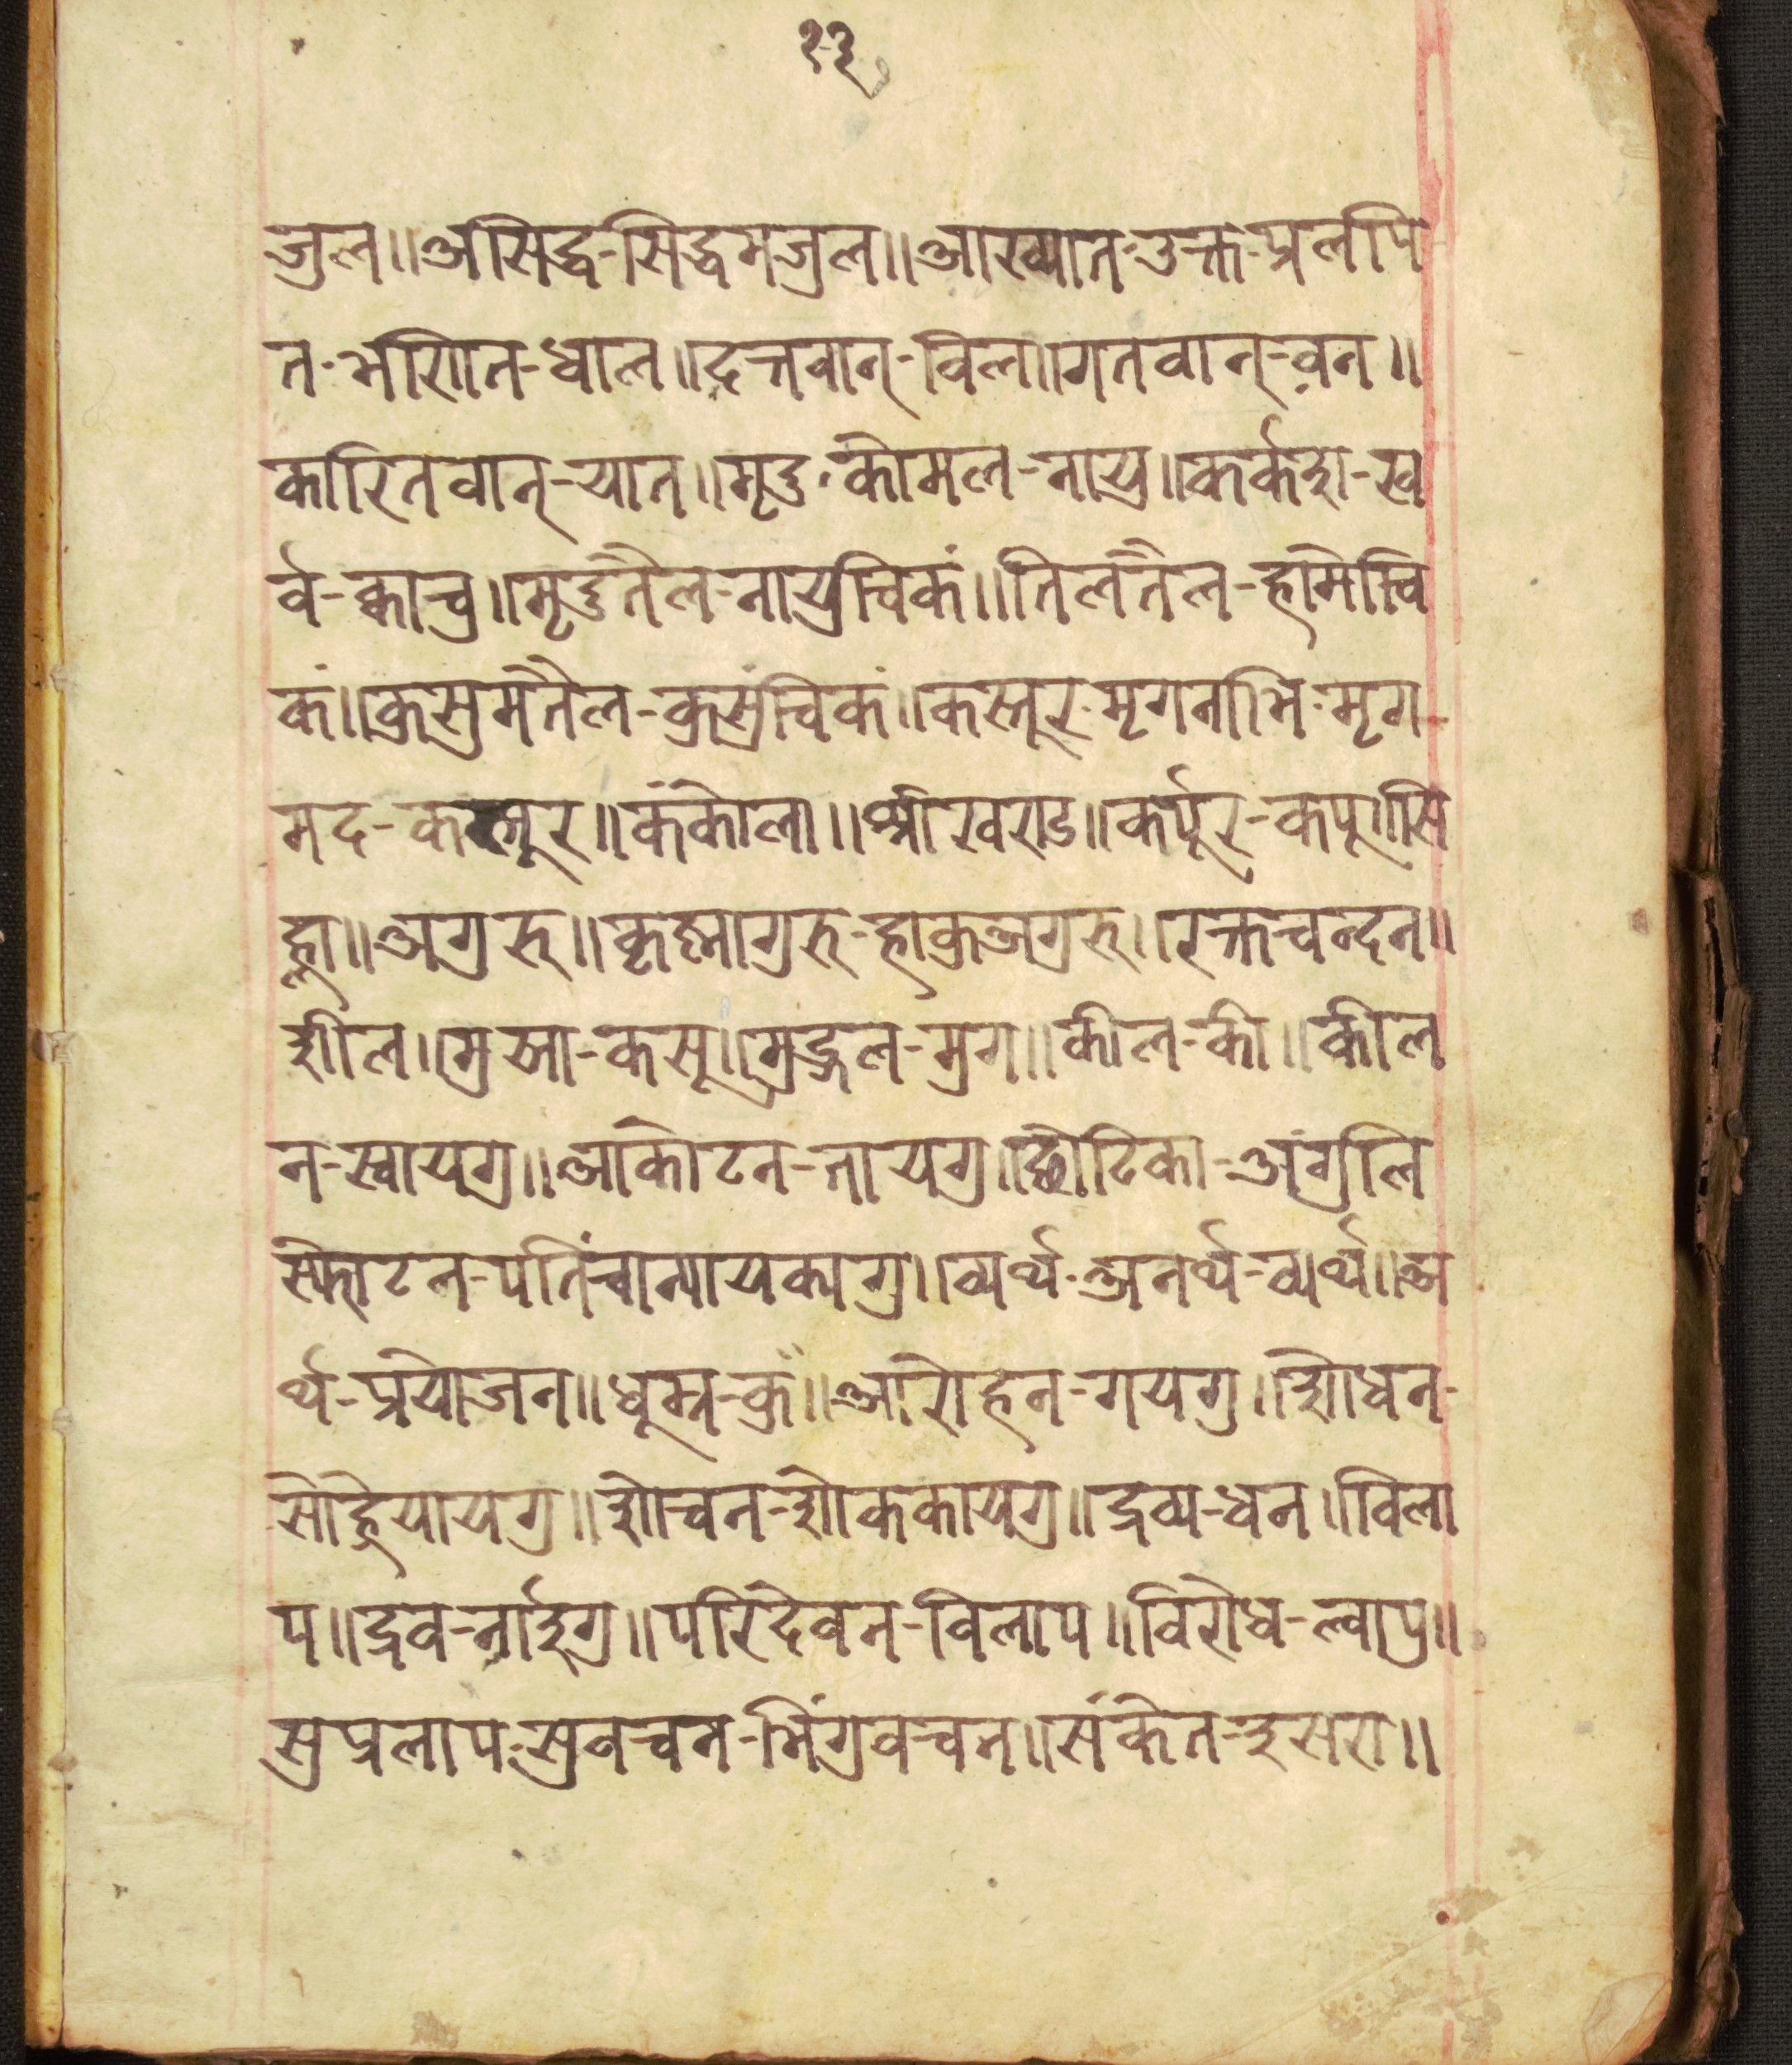 १३
जुल॥असिद्ध-सिद्धमजुल॥आख्यात-उक्त-प्रलपि
त-भणित-धाल॥दत्तवान्-विल॥गतवान्-वन॥
कारितवान्-यात॥मृदु-कोमल-नायु॥कर्कश-ख
र्व-क्वाचु॥मृदुतैल-नायुचिकं॥तिलतैल-हामोचि
कं॥कुसुमतैल-कुसुंचिकं॥कस्तूर-मृगनाभि-मृग-
मद-कस्तूर॥कंकोला॥श्रीखण्ड॥कर्पूर-कपू॥सि
ह्ला॥अगुरु॥कृष्णागुरु-हाकुअगुरु॥रक्तचन्दन॥
शील॥मुस्ता-कसू॥मुद्गल-मुग॥कील-की॥कील
न-स्वायगु॥आकोटन-तायगु॥छोटिका-अंगुलि
स्फोटन-पतिंचान्यायकागु॥व्यर्थ-अनर्थ-व्यर्थ॥अ
र्थ-प्रयोजन॥धूम्र-कुं॥आरोहन-गयगु॥शोधन-
सोहुयायगु॥शोचन-शोककायगु॥द्रव्य-धन॥विला
प॥द्रव-नाइगु॥परिदेवन-विलाप॥विरोध-ल्वापु॥
सुप्रलाप-सुवचन-भिंगुवचन॥संकेत-इसरा॥